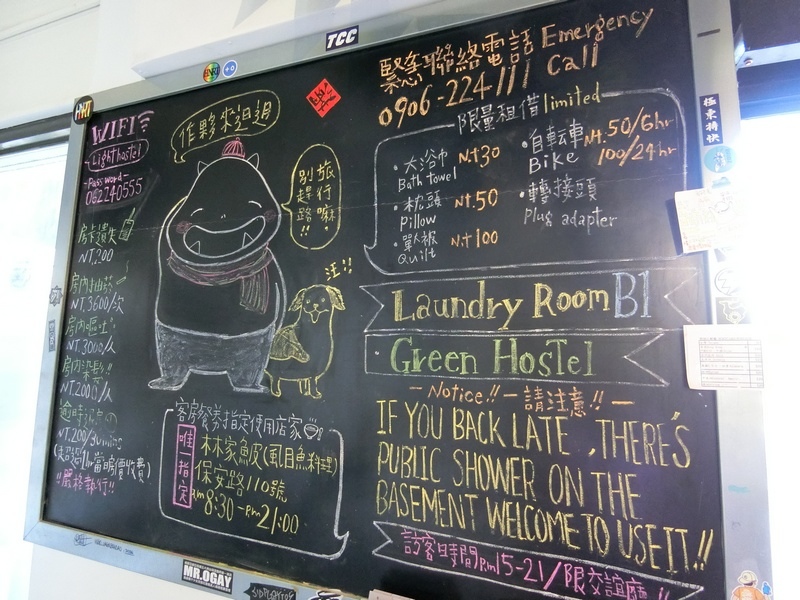 TCC
WIFI
Lighthostel
Password
062240555
房卡遺失
NT.200
房內抽菸
NT.3600/次
房內嘔吐
NT.3000/人
房內染髮!!
NT.2000/人
逾時退房
NT.200/30mins
!!嚴格執行!!
作夥來迌迌
別趕路!!
旅行嘛
汪!!
客房餐券指定使用店家
唯一指定
林家魚皮(風目魚料理)
保安路110號
am8:30-Pm21:00
緊急聯絡電話 Emergency Call
0906-224111
限量租借limited
·大浴巾 Nt30
Bath towel
·枕頭 NT.50
Pillow
·單被 Nt100
Quilt
·自転車 Nt.50/6hr
Bike 100/24hr
·轉接頭
Plug adapter
Laundry Room B1
·Green Hostel
-Notice!!-請注意!!-
IF YOU BACK LATE, THERE'S
PUBLIC SHOWER ON THE
BASEMENT WELCOME TO USE IT!!
訪客時間Pm15-21/限交誼廳
MR.OGAY